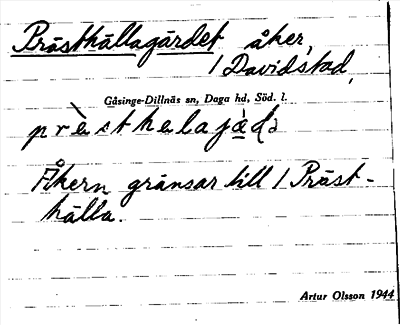 Prästkällagärdet åker,
1 Davidstad,
Gåsinge-Dillnäs sn, Daga hd, Söd. l.
Åkern gränsar till 1 Präst-
källa.
Artur Olsson 1944